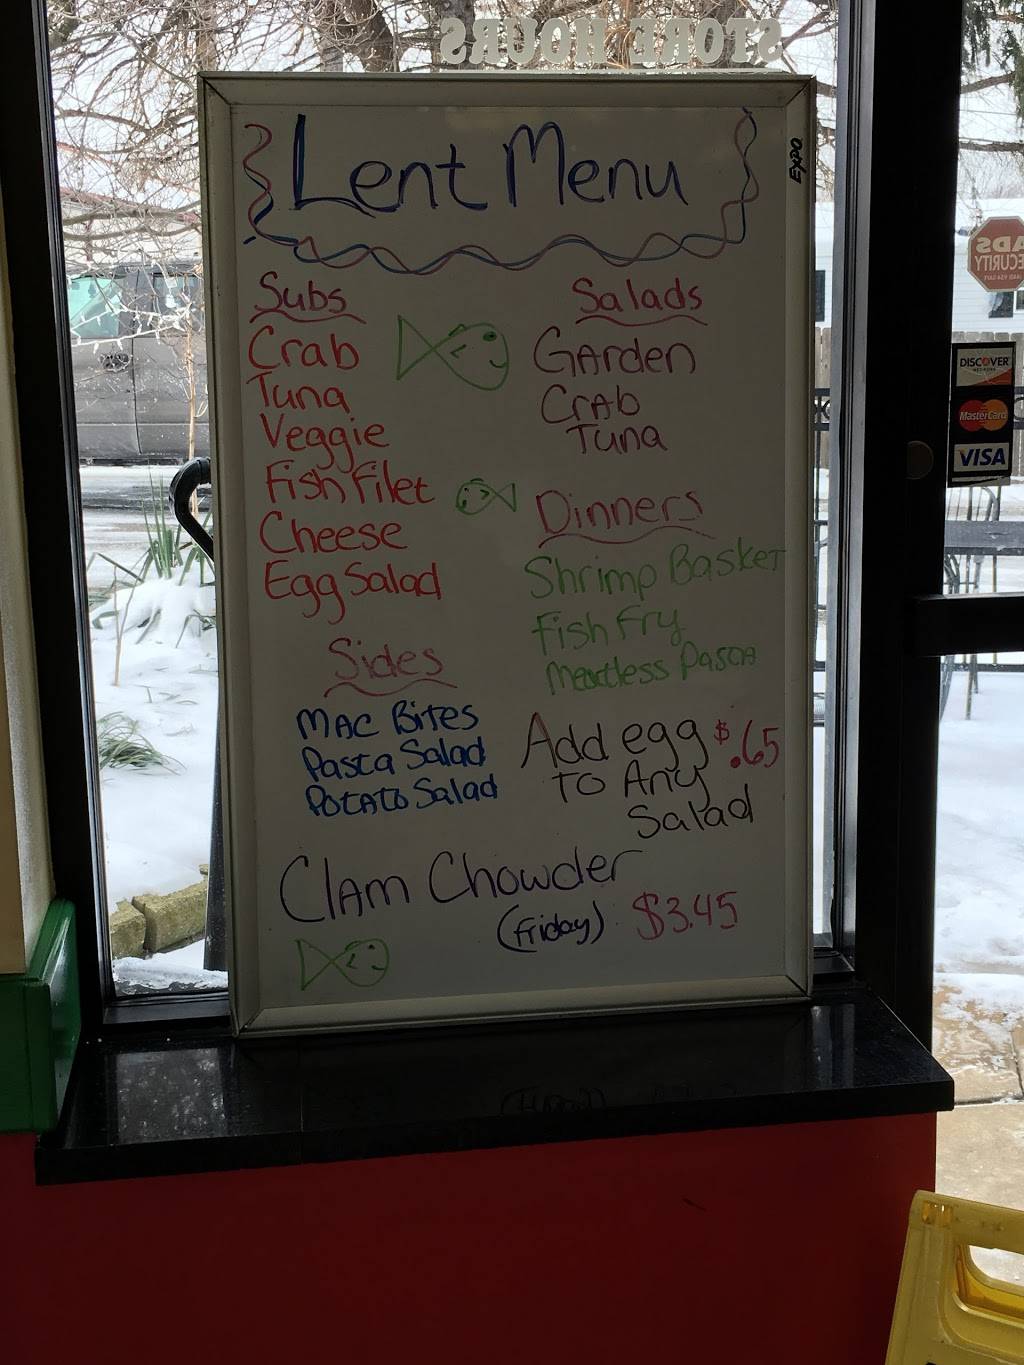 STORE HOURS
Lent Menu
EXPO
Subs
Crab
Tuna
Veggie
Fish Filet
Cheese
Egg Salad
Sides
MAC Bites
Pasta Salad
POTATO Salad
Salads
GArden
CrAb
Tuna
Dinners
Shrimp Basket
Fish Fry
Meatless Pasta
Add egg $.65
TO Any
Salad
Clam Chowder
(Friday) $3.45
ADS
SECURITY
DISCOVER
NETWORK
MasterCard
VISA